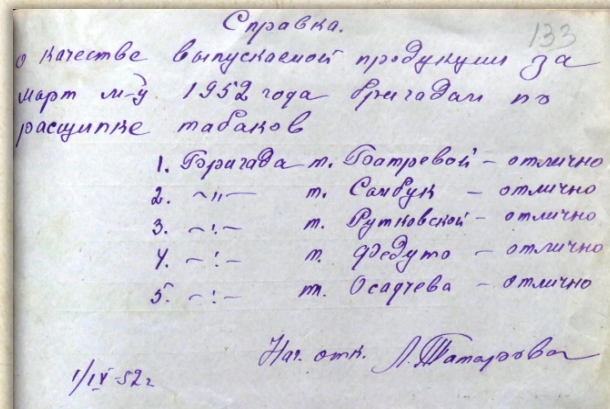 Справка.
133
о качестве выпускаемой продукции за
март м-ц 1952 года бригадам по
расщипке табаков
1. Бригада т. Батревой – отлично
2. –"– т. Самбук – отлично
3. –!– т. Рутковской – отлично
4. –!– т. Федуто – отлично
5. –!– т. Осадчева – отлично
Нач. отк. Л. Татарова
1/IV-52г